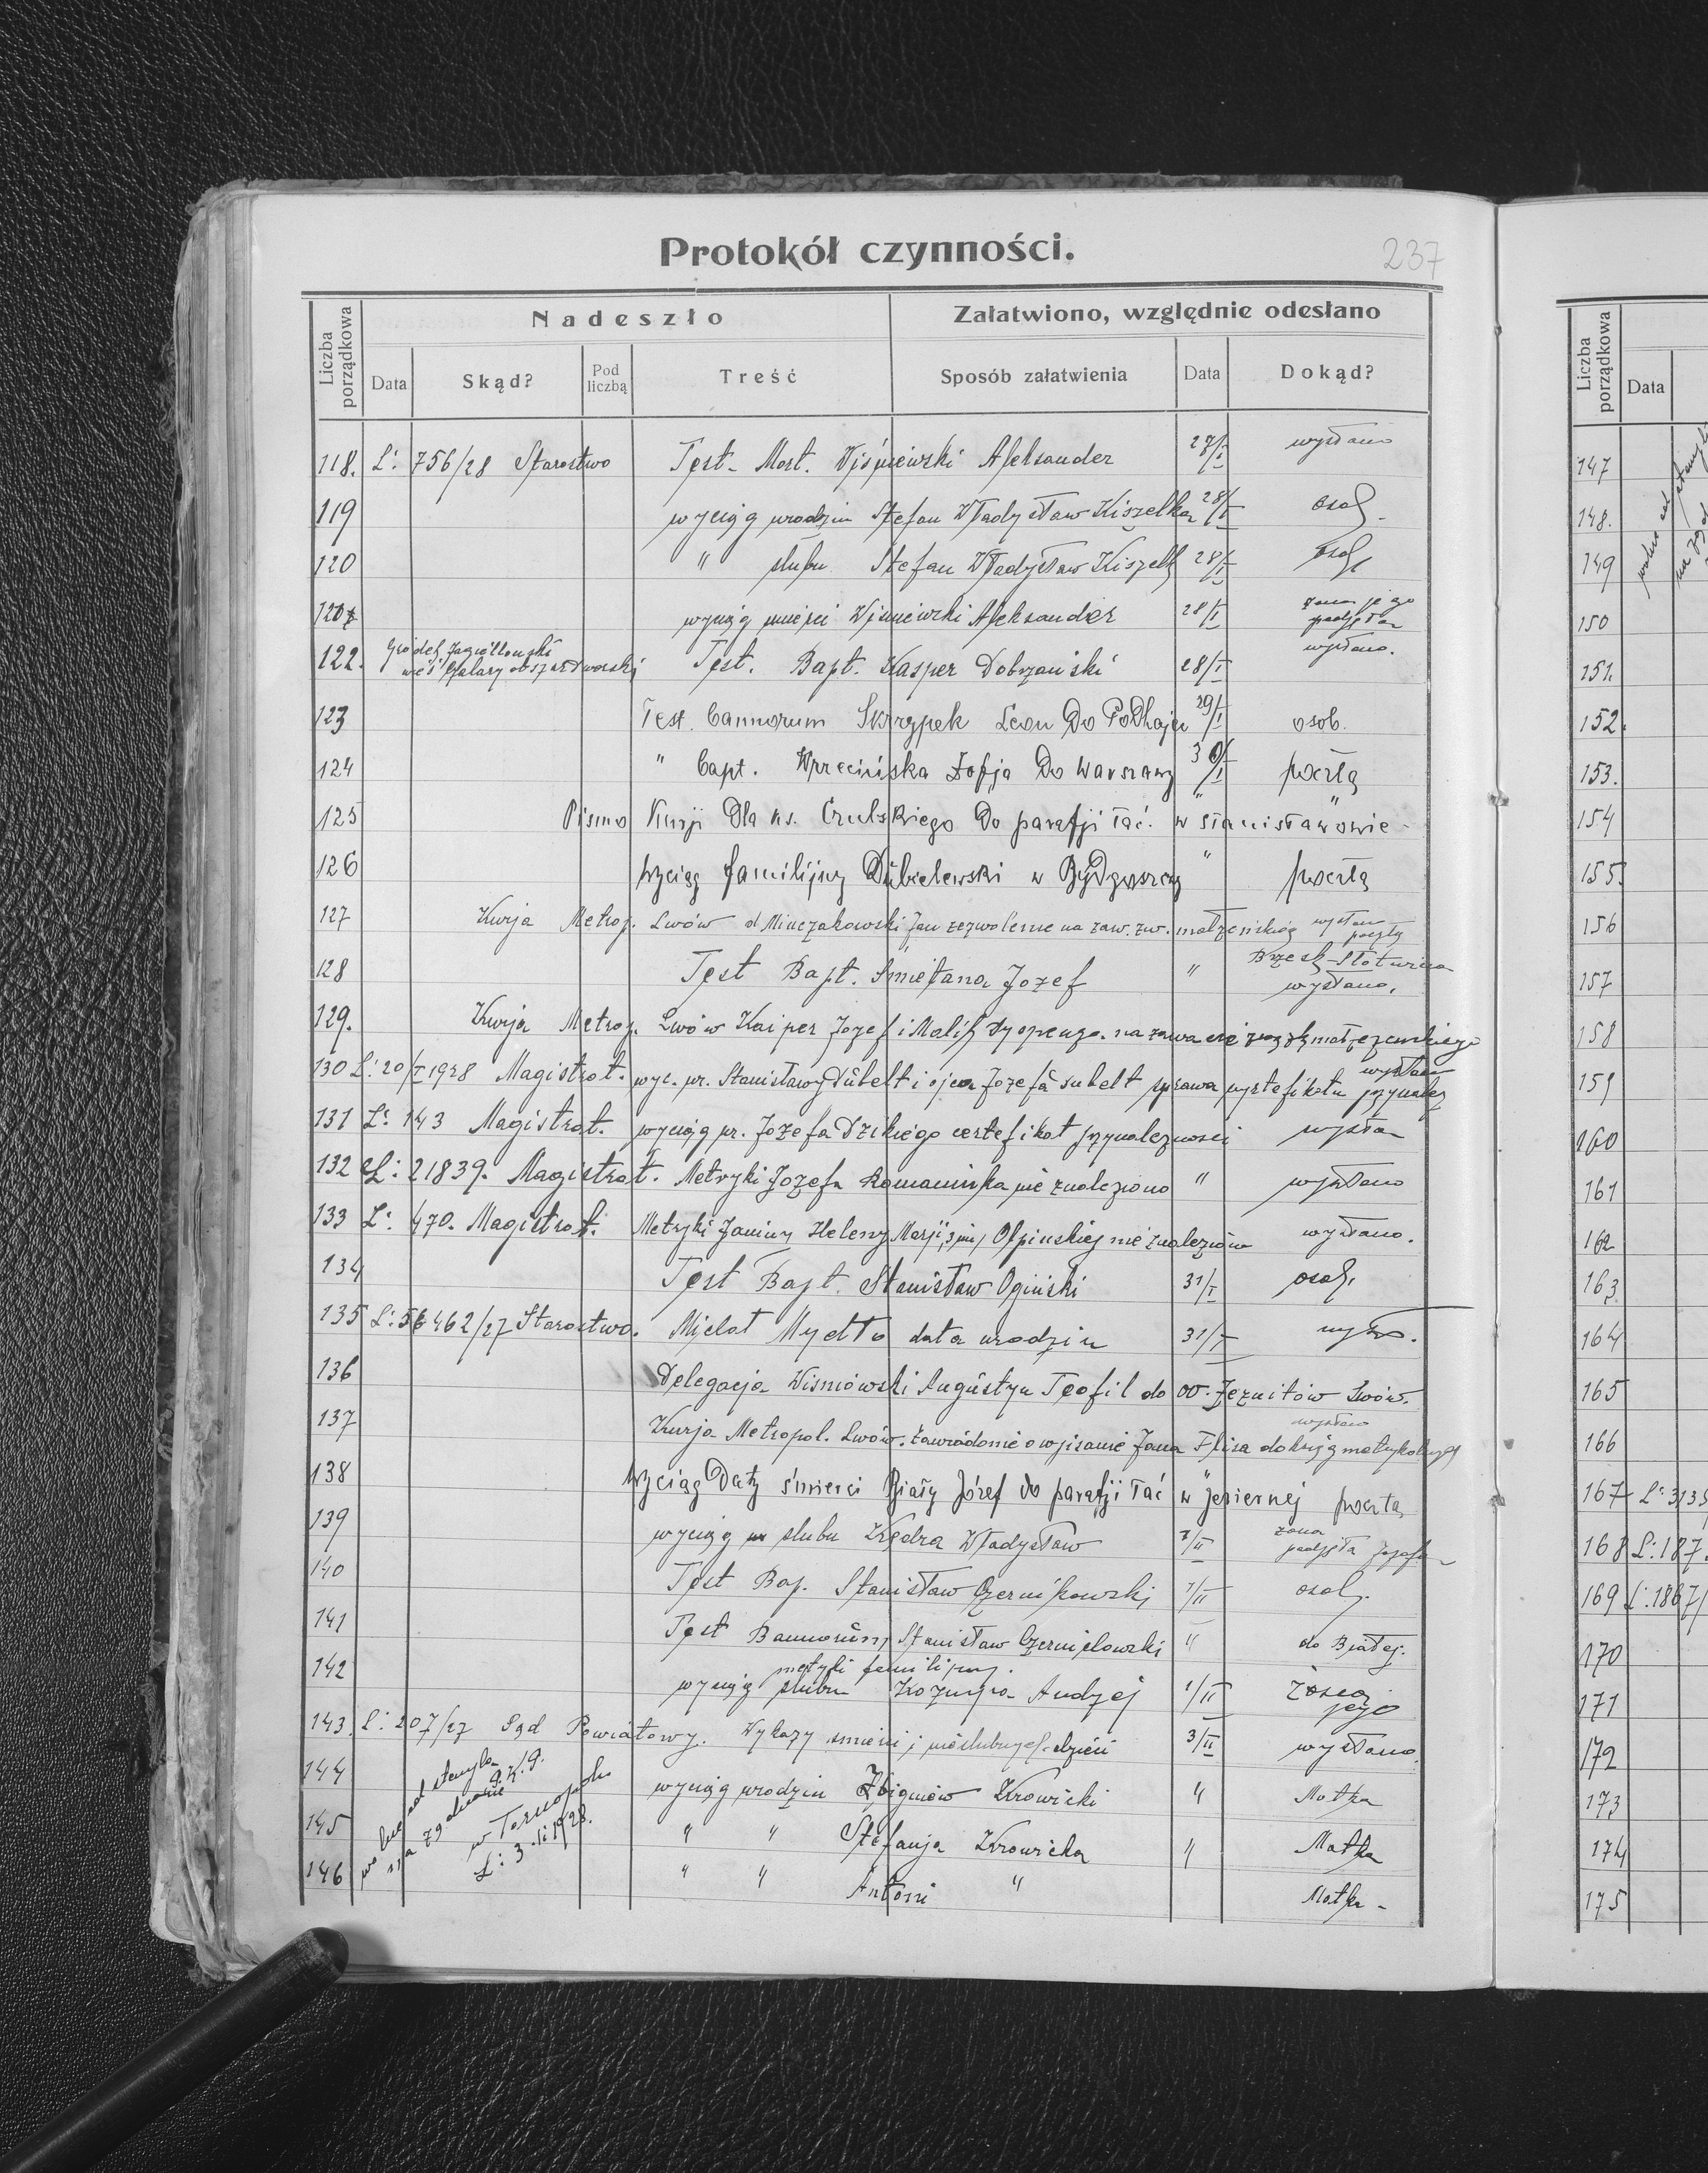 Protokół czynności.
237
Liczba porządkowa
Nadeszło
Załatwiono, względnie odesłano
Data
Skąd?
Pod liczbą
Treść
Sposób załatwienia
Data
Dokąd?
118. L: 756/28 Starostwo Test. Mort. Wiśniewski Aleksander 27/I wysłano
119 wyciąg urodzin Stefan Władysław Kiszelka 28/I osob.
120 " ślubu Stefan Władysław Kiszelk 28/I osob.
121 wyciąg śmierci Wiśniewski Aleksander 28/I żona jego podjęła
122. Gródek Jagielloński wieś obszar dworski Test. Bapt. Kasper Dobrzański 28/I wysłano.
123 Test. bannorum Skrzypek Leon Do Podhajec 29/I osob.
124 " bapt. Wrzecińska Zofja Do Warszawy 30/I pocztą
125 Pismo Kurji Dla ks. Czulskiego Do parafji łać. w Stanisławowie "
126 Wyciąg familijny Dubielewski w Bydgoszczy " pocztą
127 Kurja Metrop. Lwów Minczakowski Jan zezwolenie na zaw. zw. małżeńskiego wysłano pocztą
128 Test Bapt. Śmietana Jozef " Brzesk-Słotwina wysłano.
129. Kurja Metrop. Lwów Kaiper Jozef i Malik dyspenza. na zawarcie małżeńskiego
130 L: 20/I 1928 Magistrat. wyc. ur. Stanisławy Dubelt i ojca Jozefa Dubelt sprawa certefikatu przynależ wysłano
131 L: 143 Magistrat. wyciąg ur. Jozefa Dzikiego certefikat przynależnosci wysłan
132 L: 21839. Magistrat. Metryki Jozefa Romaninka nie znaleziono " wysłano
133 L: 470. Magistrat. Metryki Janiny Heleny Marji Olpinskiej nie znaleziono wysłano.
134 Test Bapt. Stanisław Ogiński 31/I osob.
135 L: 56462/27 Starostwo. Mielat Mydło data urodzin 31/I wysł.
136 Delegacja Wisniowski Augustyn Teofil do OO. Jezuitów Lwów.
137 Kurja Metropol. Lwów. zawiadomie o wpisanie Jana Flisa do ksiąg metrykalnych wysłano
138 Wyciąg Daty śmierci Biały Józef do parafji łać w Jeziernej pocztą
139 wyciąg ślubu Kędra Władysław 1/II żona podjęła
140 Test Bap. Stanisław Czernikowski 1/II osob.
141 Test Bannorum Stanisław " do Białej.
142 wyciąg metryki familijny. ślubu Kozuńa Andrzej 1/II żona jego
143. L: 207/27 Sąd Powiatowy. Wykazy smierci i nieslubnych dzieci 3/II wysłano
144 wyciąg urodzin Zbigniew Krowicki " Matka
145 " " Stefanja Krowicka " Matka
146 " " Antoni " Matka -
wolne od stempla na zgdanie P.K.U. w Tarnopolu L: 3.II 1928.
Liczba porządkowa
Data
147
148.
149
150
151.
152.
153.
154
155.
156
157
158
159
160
161
162
163
164
165
166
167
168 L: 187
169 L: 1867/
170
171
172
173
174
175